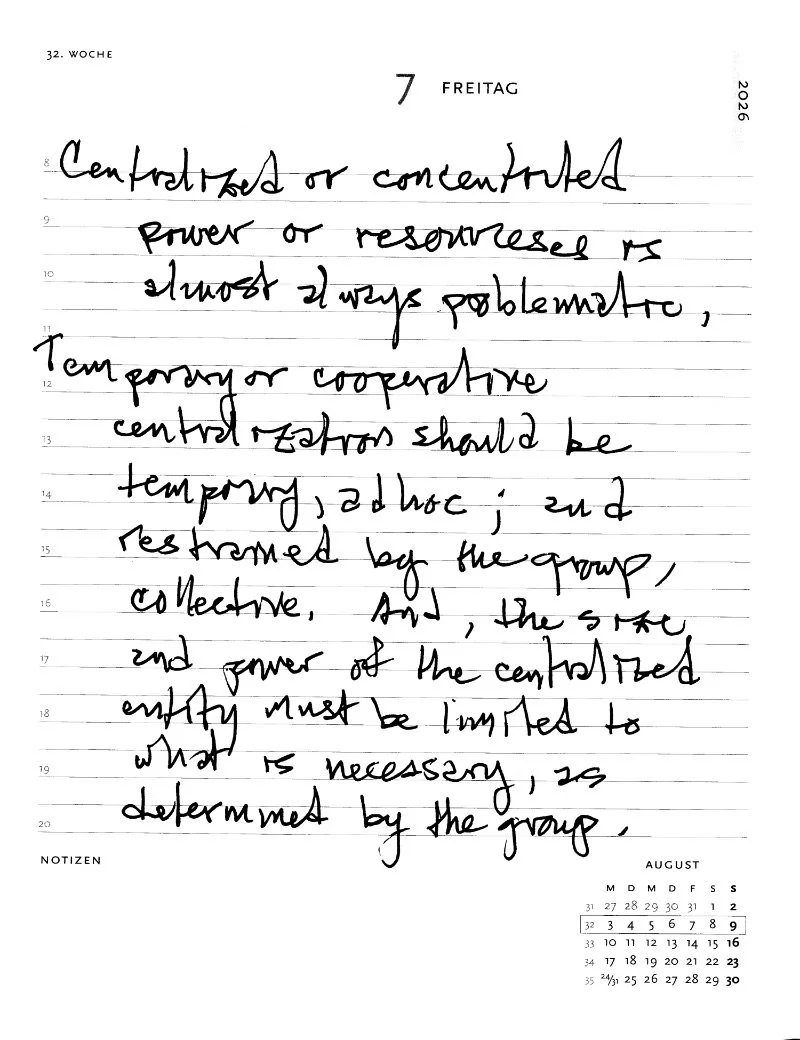 32. WOCHE
7 FREITAG
2026
8 Centralized or concentrated
9 power or resourceses is
10 almost always problemmatic,
11
Temporary or cooperative
12
13 centralization should be
14 temporary, ad hoc; and
15 restrained by the group,
16 collective. And, the size
17 and power of the centralized
18 entity must be limited to
what is necessary, as
19
determined by the group.
20
NOTIZEN
AUGUST
M D M D F S S
31 27 28 29 30 31 1 2
32 3 4 5 6 7 8 9
33 10 11 12 13 14 15 16
34 17 18 19 20 21 22 23
35 24/31 25 26 27 28 29 30